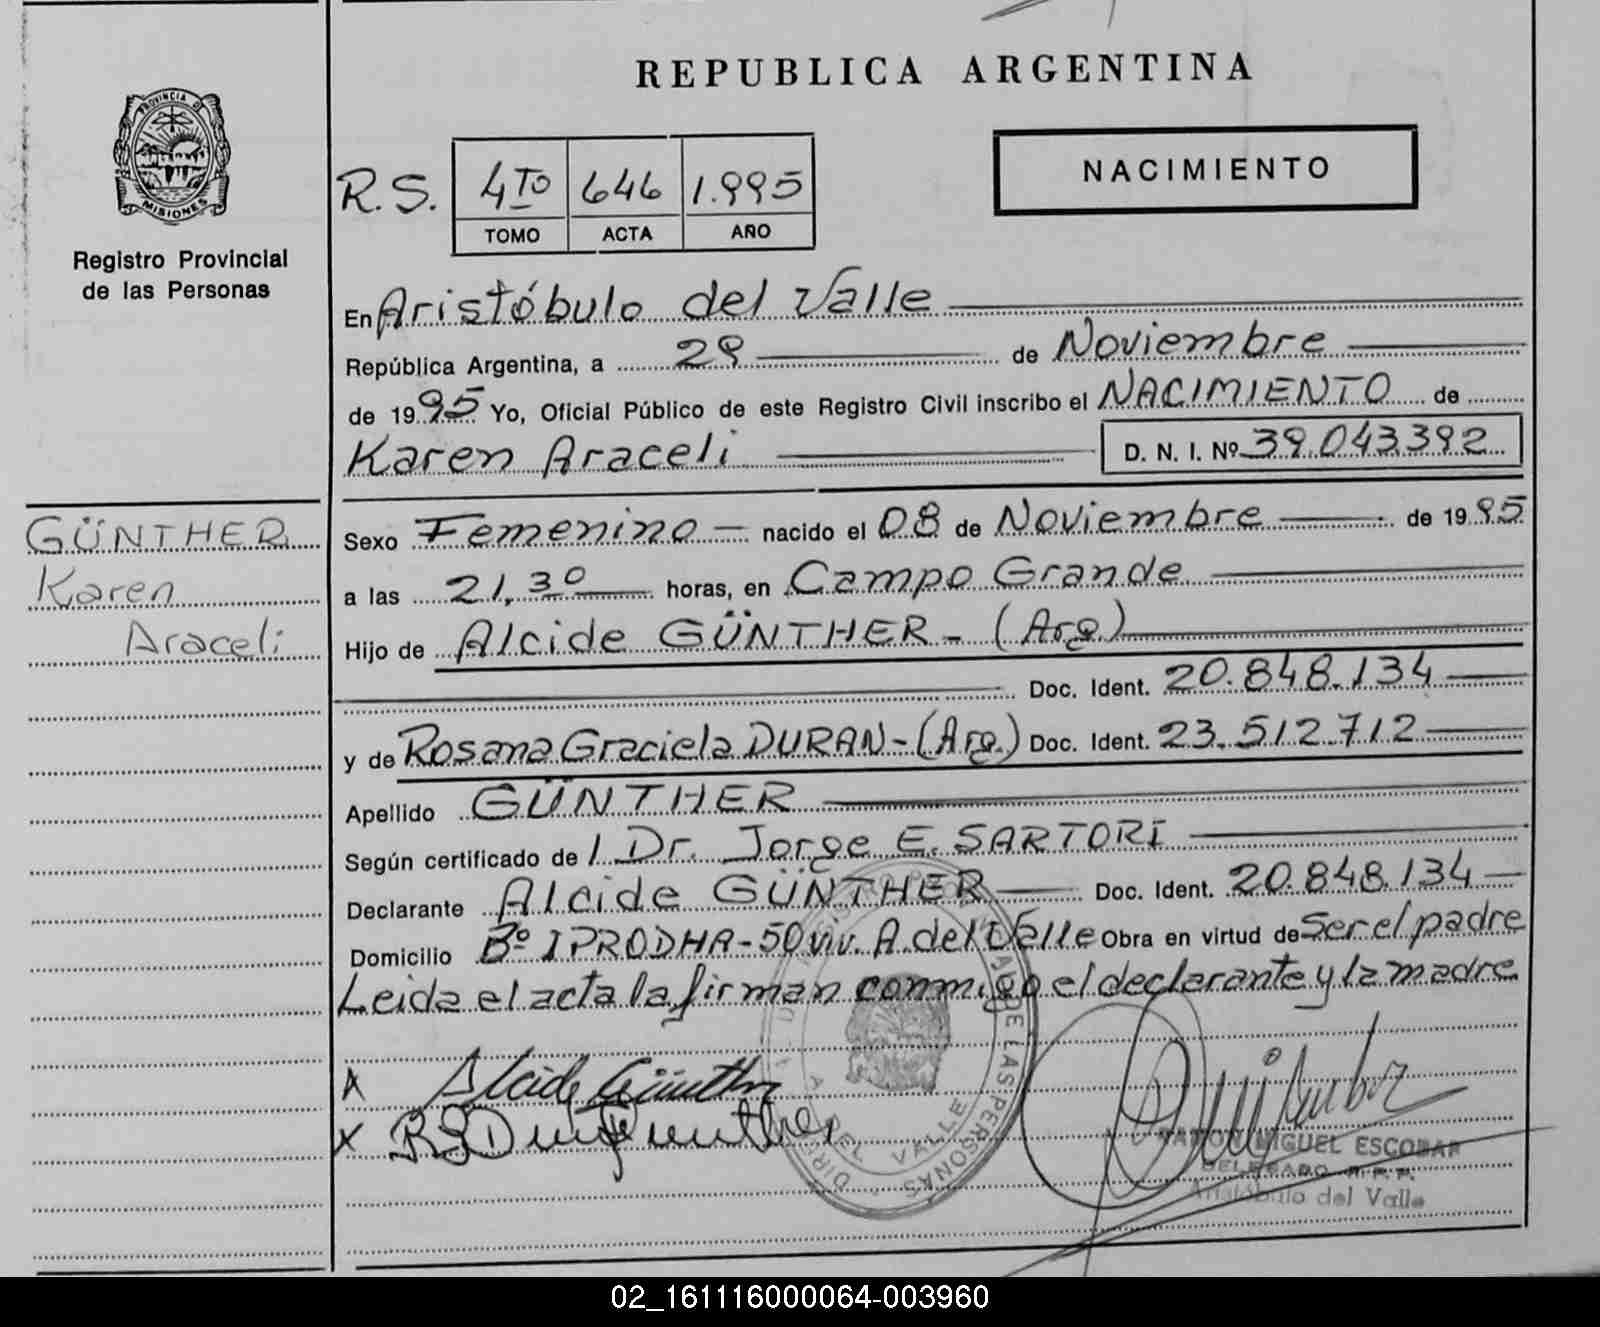 REPUBLICA ARGENTINA
PROVINCIA DE
MISIONES
Registro Provincial
de las Personas
R.S.
4TO 646 1.995
TOMO ACTA AÑO
NACIMIENTO
En Aristóbulo del Valle
República Argentina, a 29 de Noviembre
de 1995 Yo, Oficial Público de este Registro Civil inscribo el NACIMIENTO de
Karen Araceli D. N. I. Nº 39.043.392
GÜNTHER
Karen
Araceli
Sexo Femenino nacido el 08 de Noviembre de 1995
a las 21,30 horas, en Campo Grande
Hijo de Alcide GÜNTHER - (Arg.)
Doc. Ident. 20.848.134
y de Rosana Graciela DURAN - (Arg.) Doc. Ident. 23.512.712
Apellido GÜNTHER
Según certificado de / Dr. Jorge E. SARTORI
Declarante Alcide GÜNTHER Doc. Ident. 20.848.134
Domicilio Bº IPRODHA - 50 viv. A. del Valle Obra en virtud de ser el padre
Leida el acta la firman conmigo el declarante y la madre
Alcide Günther
DE LAS PERSONAS
VALLE
RAMON MIGUEL ESCOBAR
DELEGADO R.P.P.
Aristóbulo del Valle
02_161116000064-003960